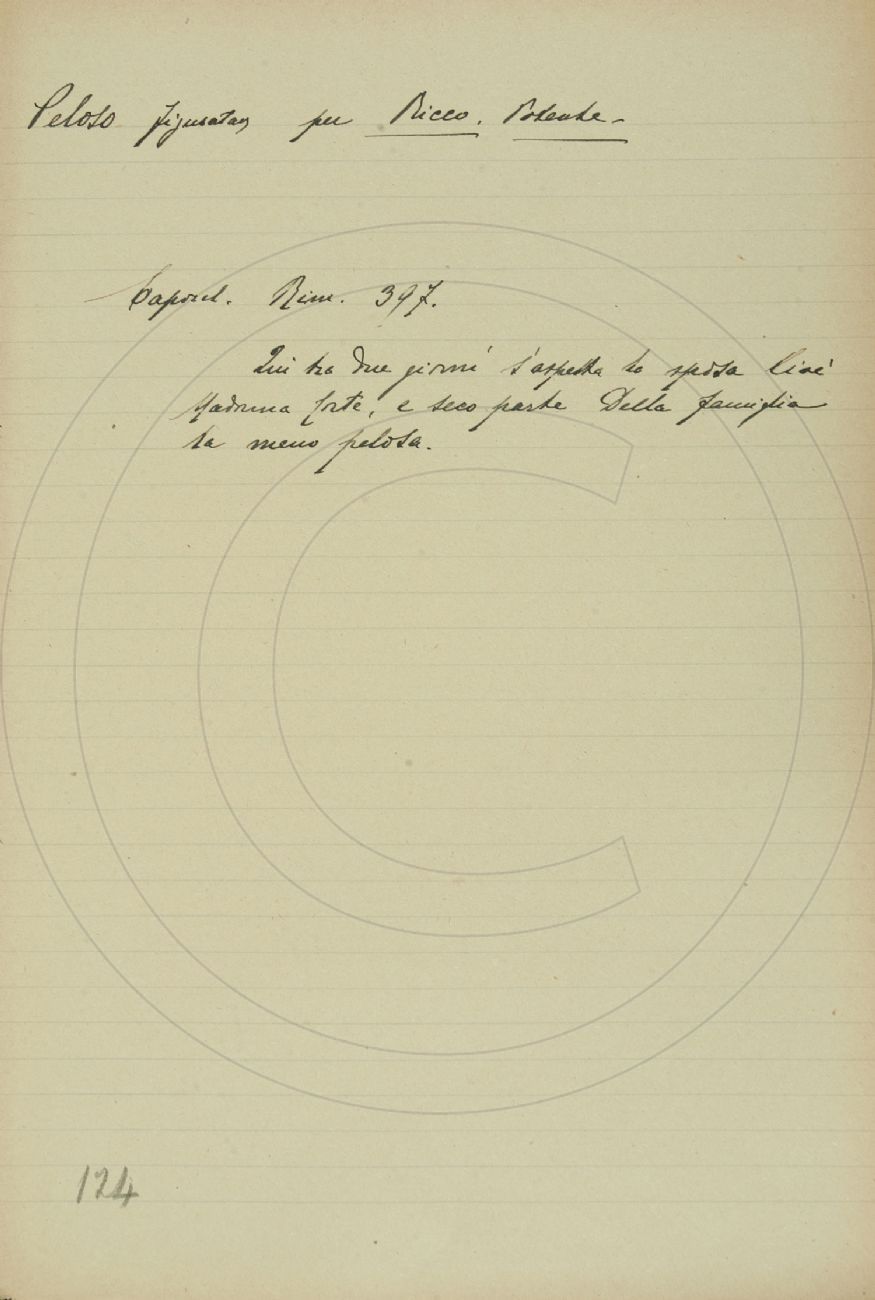 Peloso figuratam per Ricco. Potente -
Caporal. Rim. 397.
Qui tra due giorni s'aspetta la sposa Cioè
Madonna Corte, e seco parte Della famiglia
la meno pelosa.
124